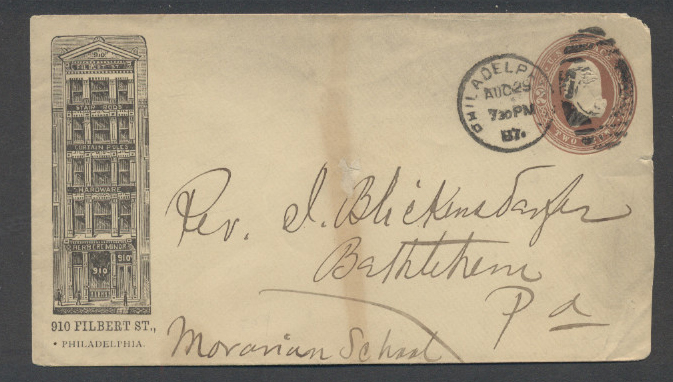 910
FILBERT ST
STAIR RODS
CURTAIN POLES
HARDWARE
910
910
910 FILBERT ST.,
PHILADELPHIA.
PHILADELPHIA
AUG 29
7 30 PM
87.
TWO
Rev. J. Blickensderfer
Bethlehem
Pa
Moravian School